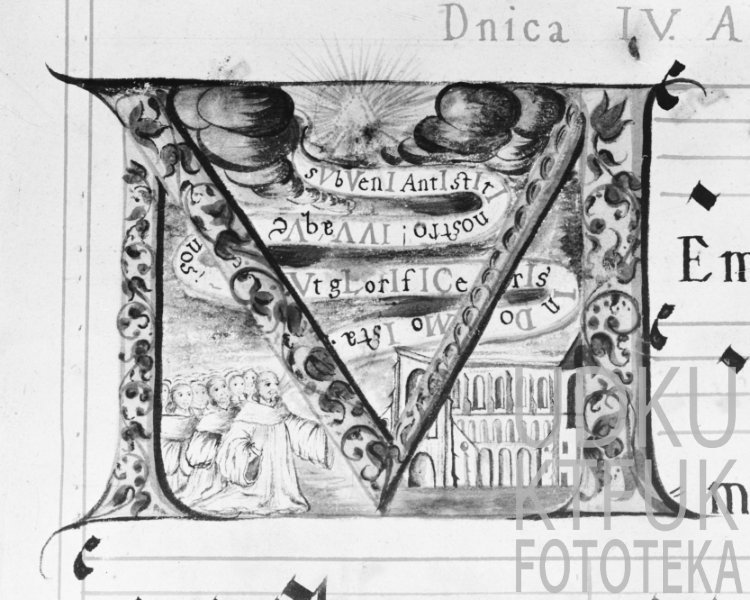 Dnica IV. A
sVbVenI AntIstItI
nostro; IVVAqVe
nos;
VtgLorIfICerIs
In DoMo Ista
Em
m
UDKU
KTFUK
FOTOTEKA